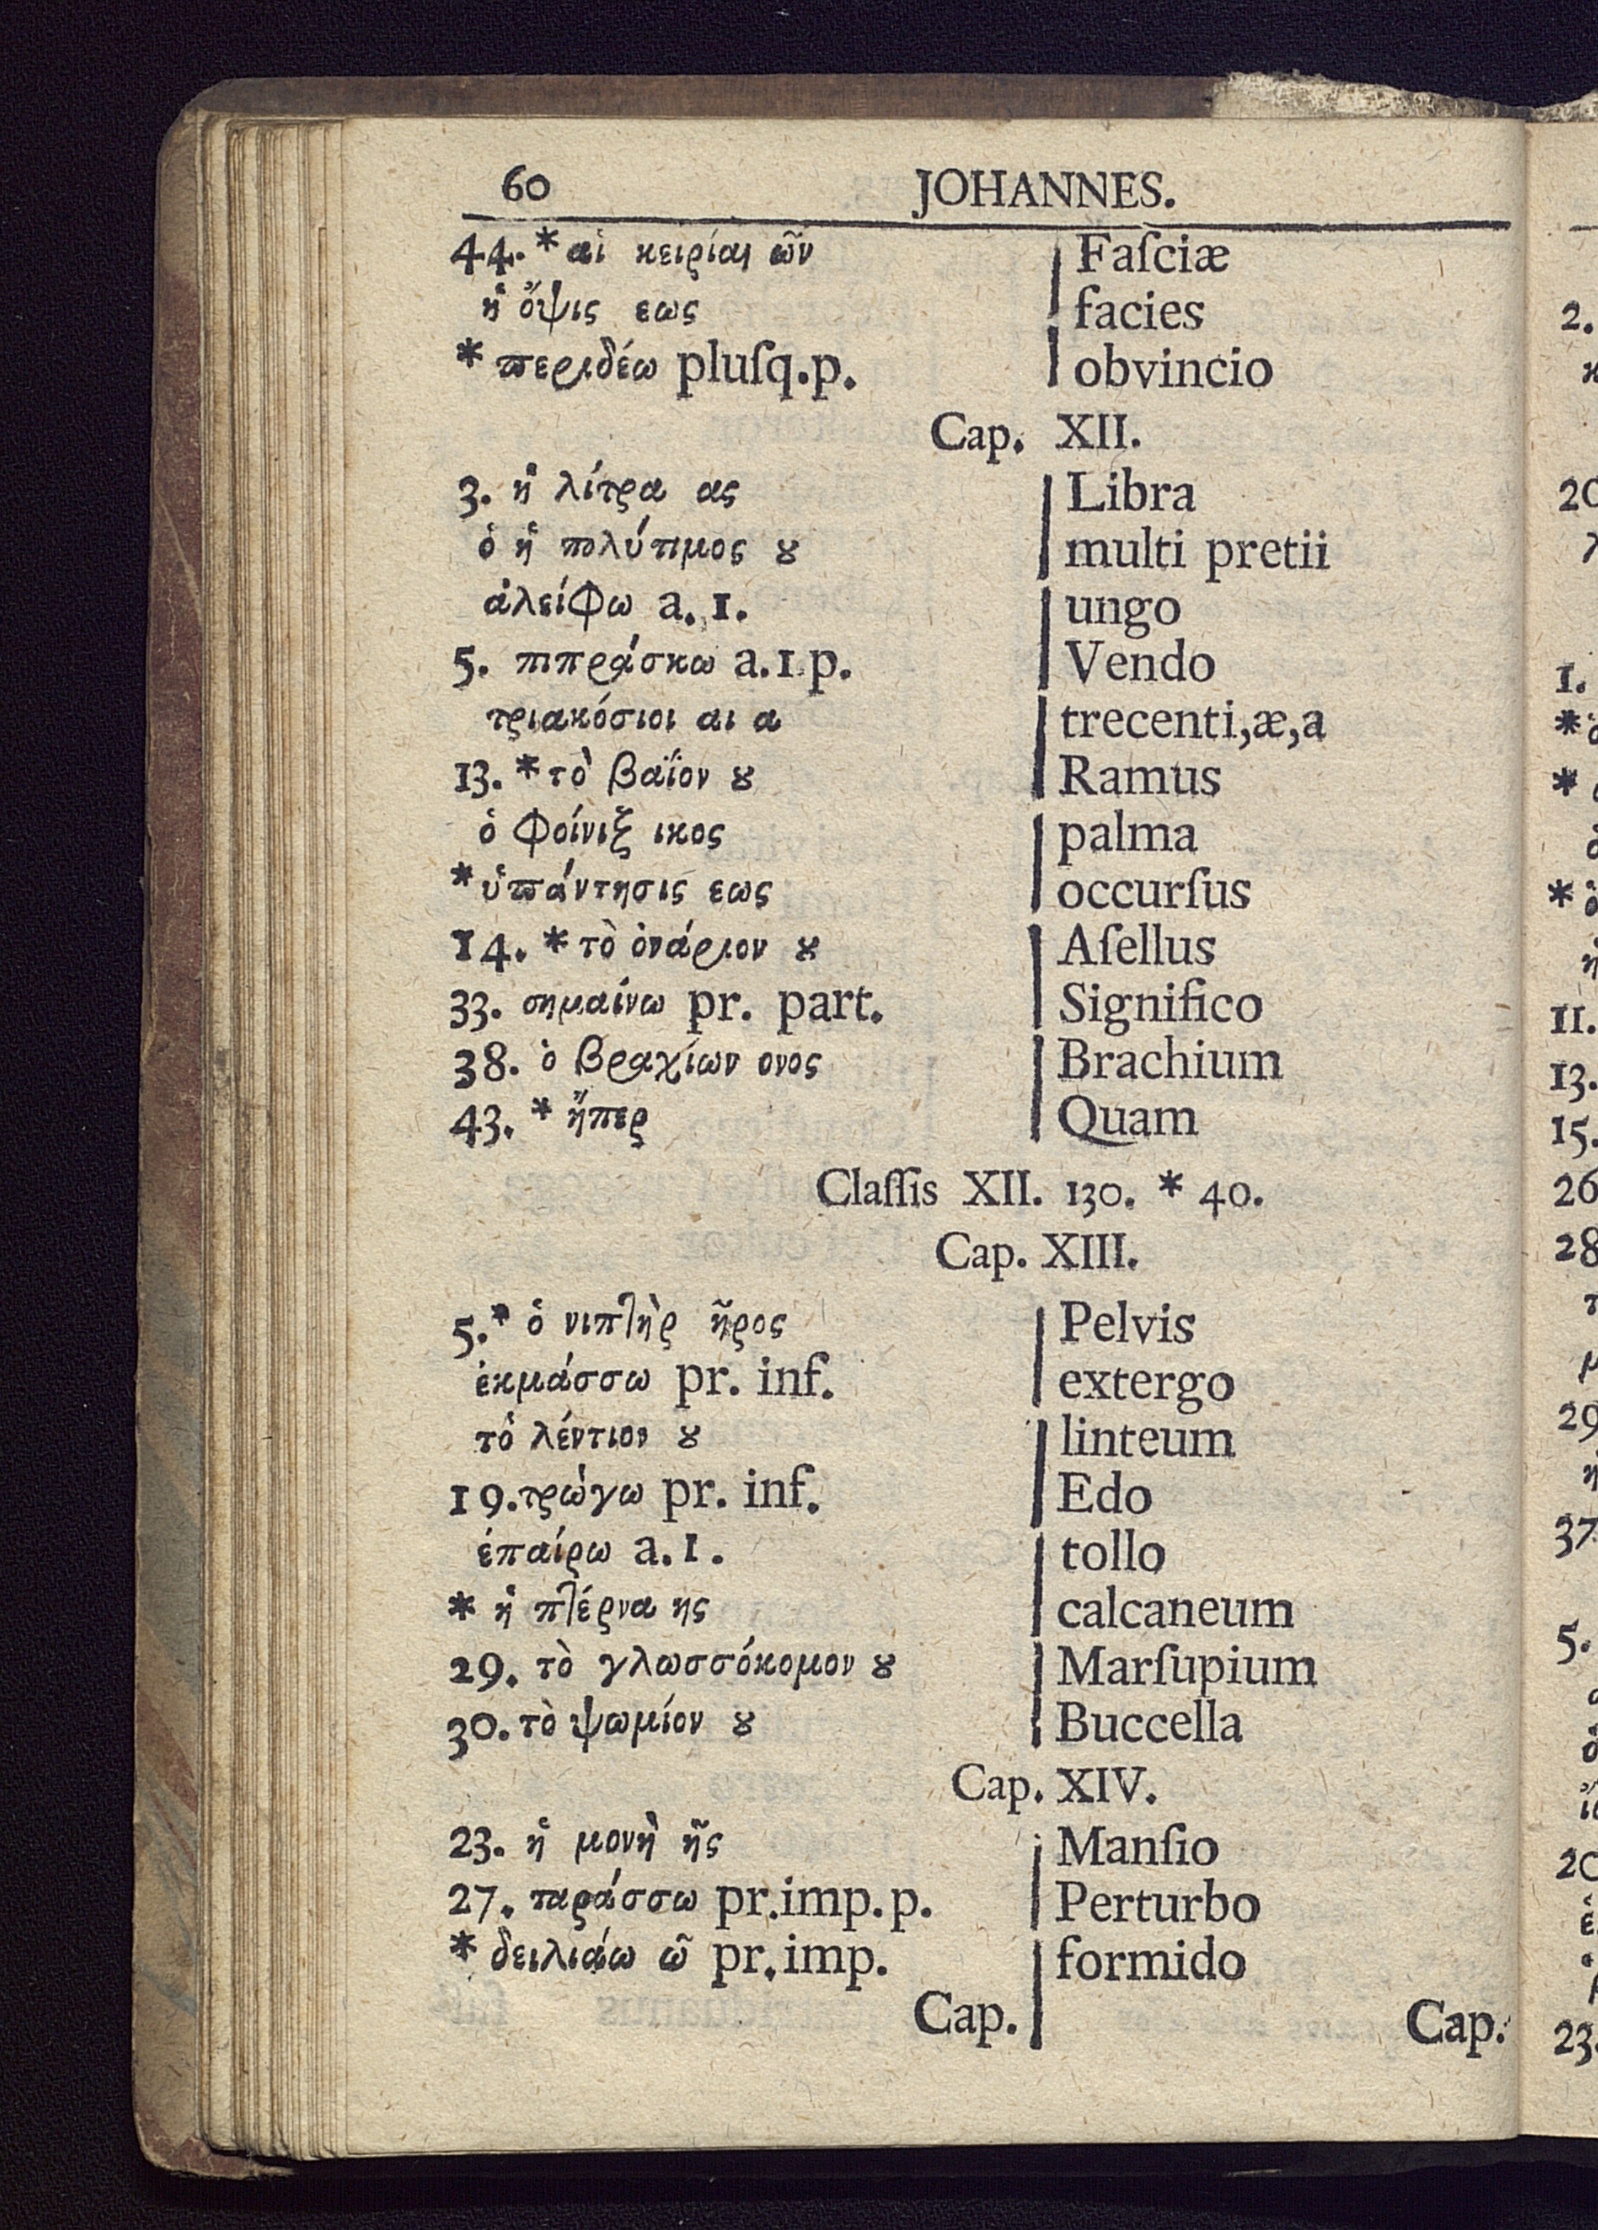 60 JOHANNES.
44. * αἱ κειρίαι ῶν | Faſciæ
ἡ ὄψις εως | facies
* περιδέω pluſq.p. | obvincio
Cap. XII.
3. ἡ λίτρα ας | Libra
ὁ ἡ πολύτιμος ȣ | multi pretii
ἀλείφω a. 1. | ungo
5. πιπράσκω a.1 p. | Vendo
τριακόσιοι αι α | trecenti,æ,a
13. * τὸ βαΐον ȣ | Ramus
ὁ φοίνιξ ικος | palma
* ὑπάντησις εως | occurſus
14. * τὸ ὀνάριον ȣ | Aſellus
33. σημαίνω pr. part. | Significo
38. ὁ βραχίων ονος | Brachium
43. * ἤπερ | Quam
Claſſis XII. 130. * 40.
Cap. XIII.
5. * ὁ νιπτὴρ ῆρος | Pelvis
ἐκμάσσω pr. inf. | extergo
τὸ λέντιον ȣ | linteum
19. τρώγω pr. inf. | Edo
ἐπαίρω a.1. | tollo
* ἡ πτέρνα ης | calcaneum
29. τὸ γλωσσόκομον ȣ | Marſupium
30. τὸ ψωμίον ȣ | Buccella
Cap. XIV.
23. ἡ μονὴ ῆς | Manſio
27. ταράσσω pr.imp.p. | Perturbo
* δειλιάω ῶ pr.imp. | formido
Cap. | Cap.
2.
20
1.
*
*
*
11.
13.
15.
26
28
29
37
5.
20
23.